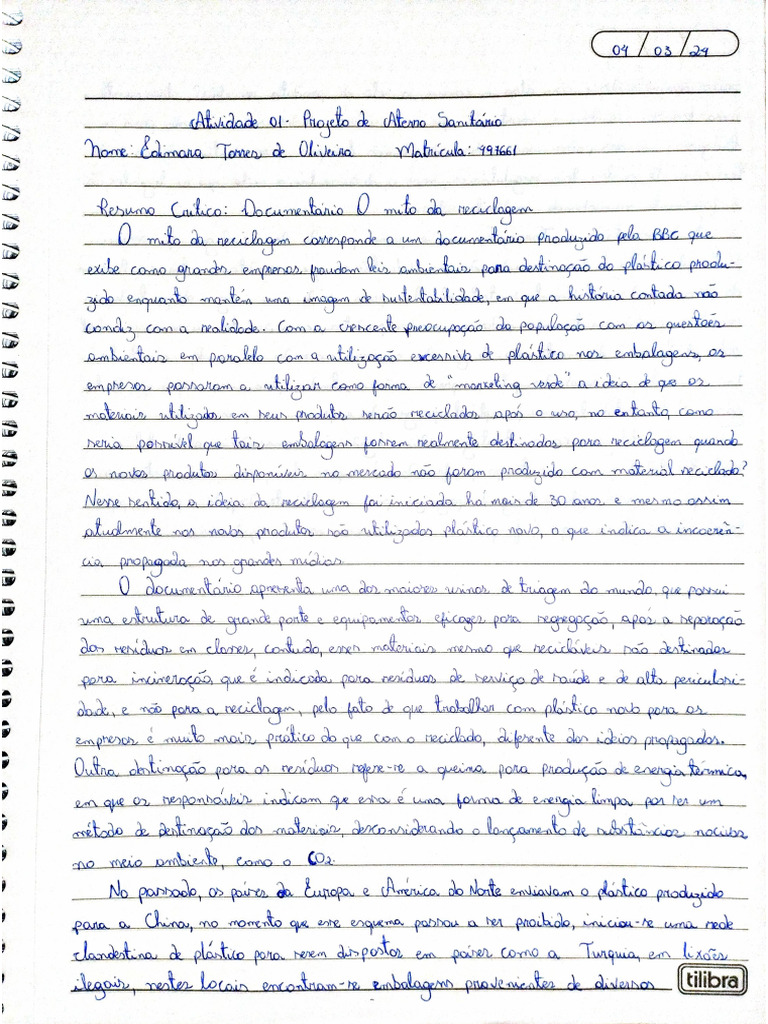 04 / 03 / 24
Atividade 01 - Projeto de Aterro Sanitário
Nome: Edimara Torres de Oliveira Matrícula: 497661
Resumo Crítico: Documentário O mito da reciclagem
O mito da reciclagem corresponde a um documentário produzido pela BBC que
exibe como grandes empresas fraudam leis ambientais para destinação do plástico produ-
zido enquanto mantém uma imagem de sustentabilidade, em que a história contada não
condiz com a realidade. Com a crescente preocupação da população com as questões
ambientais em paralelo com a utilização excessiva de plástico nas embalagens, as
empresas passaram a utilizar como forma de "marketing verde" a ideia de que os
materiais utilizados em seus produtos serão reciclados após o uso, no entanto, como
seria possível que tais embalagens fossem realmente destinadas para reciclagem quando
os novos produtos disponíveis no mercado não foram produzido com material reciclado?
Nesse sentido, a ideia da reciclagem foi iniciada há mais de 30 anos e mesmo assim
atualmente nos novos produtos são utilizados plástico novo, o que indica a incoerên-
cia propagada nas grandes mídias.
O documentário apresenta uma das maiores usinas de triagem do mundo, que possui
uma estrutura de grande porte e equipamentos eficazes para segregação, após a separação
dos resíduos em classes, contudo, esses materiais mesmo que recicláveis são destinados
para incineração, que é indicada para resíduos de serviço de saúde e de alta periculosi-
dade, e não para a reciclagem, pelo fato de que trabalhar com plástico novo para as
empresas é muito mais prático do que com o reciclado, diferente das ideias propagadas.
Outra destinação para os resíduos refere-se a queima para produção de energia térmica,
em que os responsáveis indicam que essa é uma forma de energia limpa por ser um
método de destinação dos materiais, desconsiderando o lançamento de substâncias nocivas
no meio ambiente, como o CO2.
No passado, os países da Europa e América do Norte enviavam o plástico produzido
para a China, no momento que esse esquema passou a ser proibido, iniciou-se uma rede
clandestina de plástico para serem dispostos em países como a Turquia, em lixões
ilegais, nestes locais encontram-se embalagens provenientes de diversos
tilibra